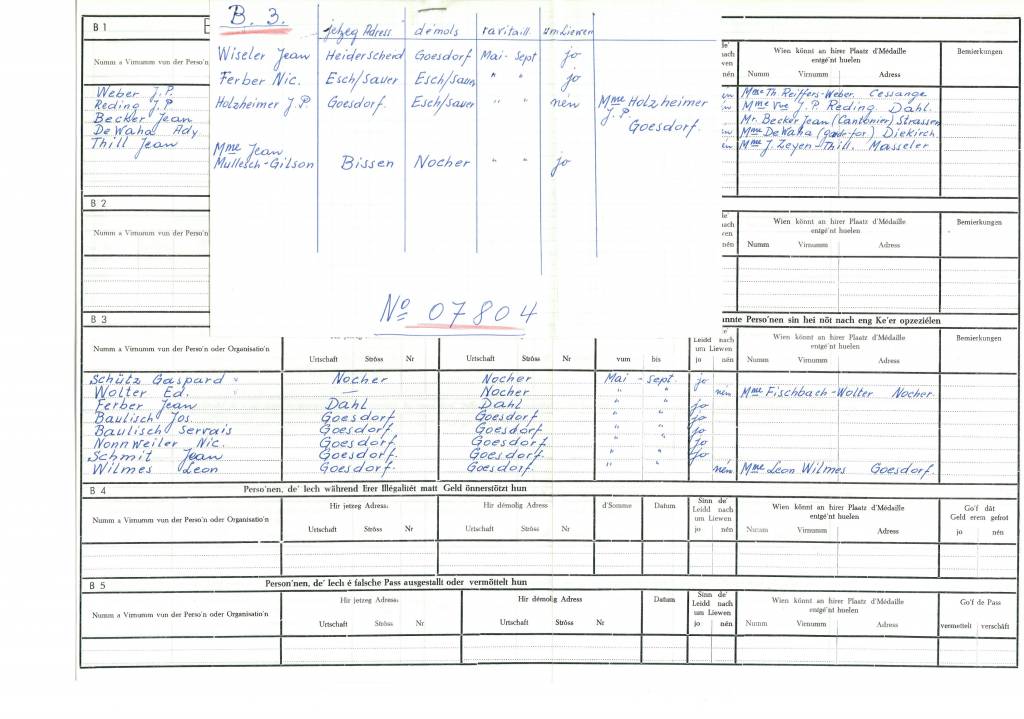 B. 3.
jetzeg Adress démols ravitaill. um Liewen
Wiseler Jean Heiderscheid Goesdorf Mai - Sept jo
Ferber Nic. Esch/Sauer Esch/Sauer " " jo
Holzheimer J.P Goesdorf. Esch/Sauer " " nen Mme Holzheimer
J. P.
Goesdorf.
Mme Jean
Mullesch-Gilson Bissen Nocher " " jo
No 07804
B 1
Numm a Virnumm vun der Perso'n
de' nach Liewen nén
Wien könnt an hirer Plaatz d'Médaille entgé'nt huelen
Bemierkungen
Numm Virnumm Adress
Weber J.P. Mme Th. Reiffers-Weber. Cessange
Reding J.P Mme Vve J.P. Reding. Dahl.
Becker Jean Mr. Becker Jean (Cantonier) Strassen
De Waha Ady Mme De Waha (garde for.) Diekirch.
Thill Jean Mme J. Zeyen-Thill. Masseler
B 2
Numm a Virnumm vun der Perso'n
de' nach Liewen nén
Wien könnt an hirer Plaatz d'Médaille entgé'nt huelen
Bemierkungen
Numm Virnumm Adress
B 3
nnte Perso'nen sin hei nöt nach eng Ke'er opzeziélen
Numm a Virnumm vun der Perso'n oder Organisatio'n
Urtschaft Ströss Nr Urtschaft Ströss Nr vum bis
Leidd nach um Liewen jo nén
Wien könnt an hirer Plaatz d'Médaille entgé'nt huelen
Numm Virnumm Adress
Bemierkungen
Schütz Gaspard " Nocher Nocher Mai - Sept. jo
Wolter Ed. — Nocher " " nén Mme Fischbach-Wolter Nocher.
Ferber Jean Dahl Dahl " " jo
Baulisch Jos. Goesdorf Goesdorf. " " jo
Baulisch Servais Goesdorf. Goesdorf. " " jo
Nonnweiler Nic. Goesdorf. Goesdorf. " " jo
Schmit Jean Goesdorf. Goesdorf. " " jo
Wilmes Leon Goesdorf. Goesdorf. " " nén Mme Leon Wilmes Goesdorf.
B 4 Perso'nen, de' Iech während Erer Illégalitét matt Geld önnerstötzt hun
Numm a Virnumm vun der Perso'n oder Organisatio'n
Hir jetzeg Adress: Hir démolig Adress: d'Somme Datum
Urtschaft Ströss Nr Urtschaft Ströss Nr
Sinn de' Leidd nach um Liewen jo nén
Wien könnt an hirer Plaatz d'Médaille entgé'nt huelen
Numm Virnumm Adress
Go'f dât Geld erem gefrot
jo nén
B 5 Person'nen, de' Iech é falsche Pass ausgestallt oder vermöttelt hun
Numm a Virnumm vun der Perso'n oder Organisatio'n
Hir jetzeg Adress: Hir démolig Adress Datum
Urtschaft Ströss Nr Urtschaft Ströss Nr
Sinn de' Leidd nach um Liewen jo nén
Wien könnt an hirer Plaatz d'Médaille entgé'nt huelen
Numm Virnumm Adress
Go'f de Pass
vermettelt verschäft